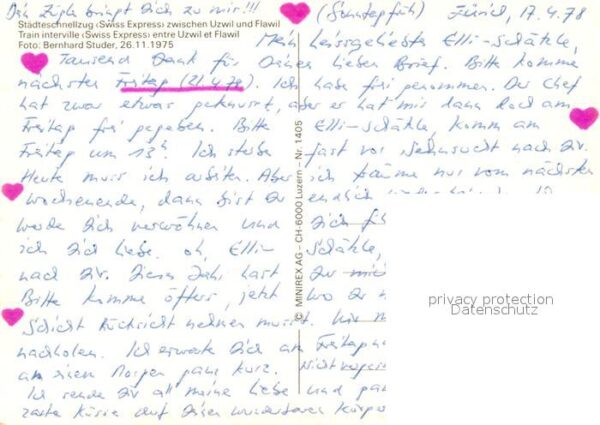 Das Zügle bringt Dich zu mir!!!
(Sonntagfrüh) Zürich, 17.4.78
Städteschnellzug ‹Swiss Express› zwischen Uzwil und Flawil
Train interville ‹Swiss Express› entre Uzwil et Flawil
Foto: Bernhard Studer, 26.11.1975
Mein heissgeliebtes Elli-Schätzle,
Tausend Dank für Deinen lieben Brief. Bitte komme
nächsten Freitag (21.4.78). Ich habe frei genommen. Der Chef
hat zwar etwas geknurrt, aber er hat mir dann doch am
Freitag frei gegeben. Bitte Elli-Schätzle, komm am
Freitag um 13h. Ich sterbe fast vor Sehnsucht nach Dir.
Heute muss ich arbeiten. Aber ich träume nur vom nächsten
Wochenende, dann bist Du endlich
werde Dich verwöhnen und Dich
ich Dich liebe. oh, Elli-Schätzle,
nach Dir. Dieses Jahr hast Du mich
Bitte komme öfters, jetzt wo Du
Schicht Rücksicht nehmen musst. Wir
nachholen. Ich erwarte Dich am Freitag
am einen Morgen ganz kurz. Nicht
Ich sende Dir all meine Liebe und
zarte Küsse auf Deinen wunderbaren Körper
© MINIREX AG - CH-6000 Luzern - Nr. 1405
privacy protection
Datenschutz